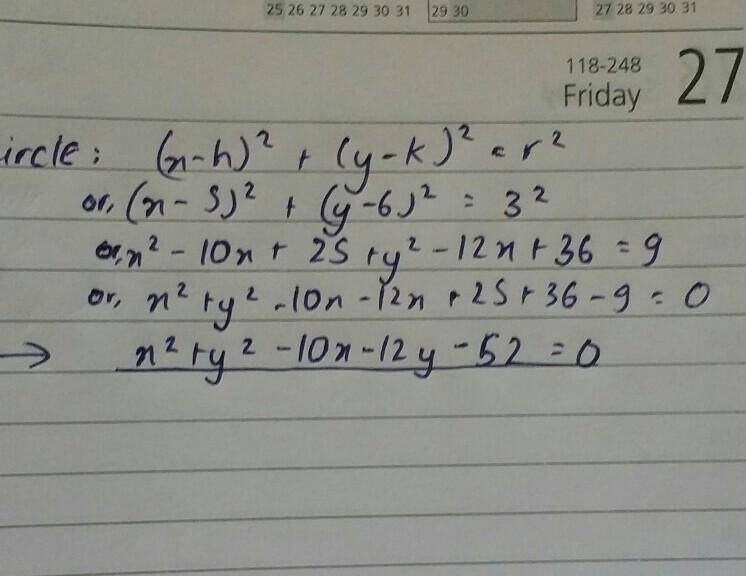 25 26 27 28 29 30 31 29 30 27 28 29 30 31
118-248 27
Friday
ircle: (x-h)² + (y-k)² = r²
or, (x - 5)² + (y-6)² = 3²
or, x² - 10x + 25 + y² - 12x + 36 = 9
or, x² + y² - 10x - 12x + 25 + 36 - 9 = 0
→ x² + y² - 10x - 12y - 52 = 0